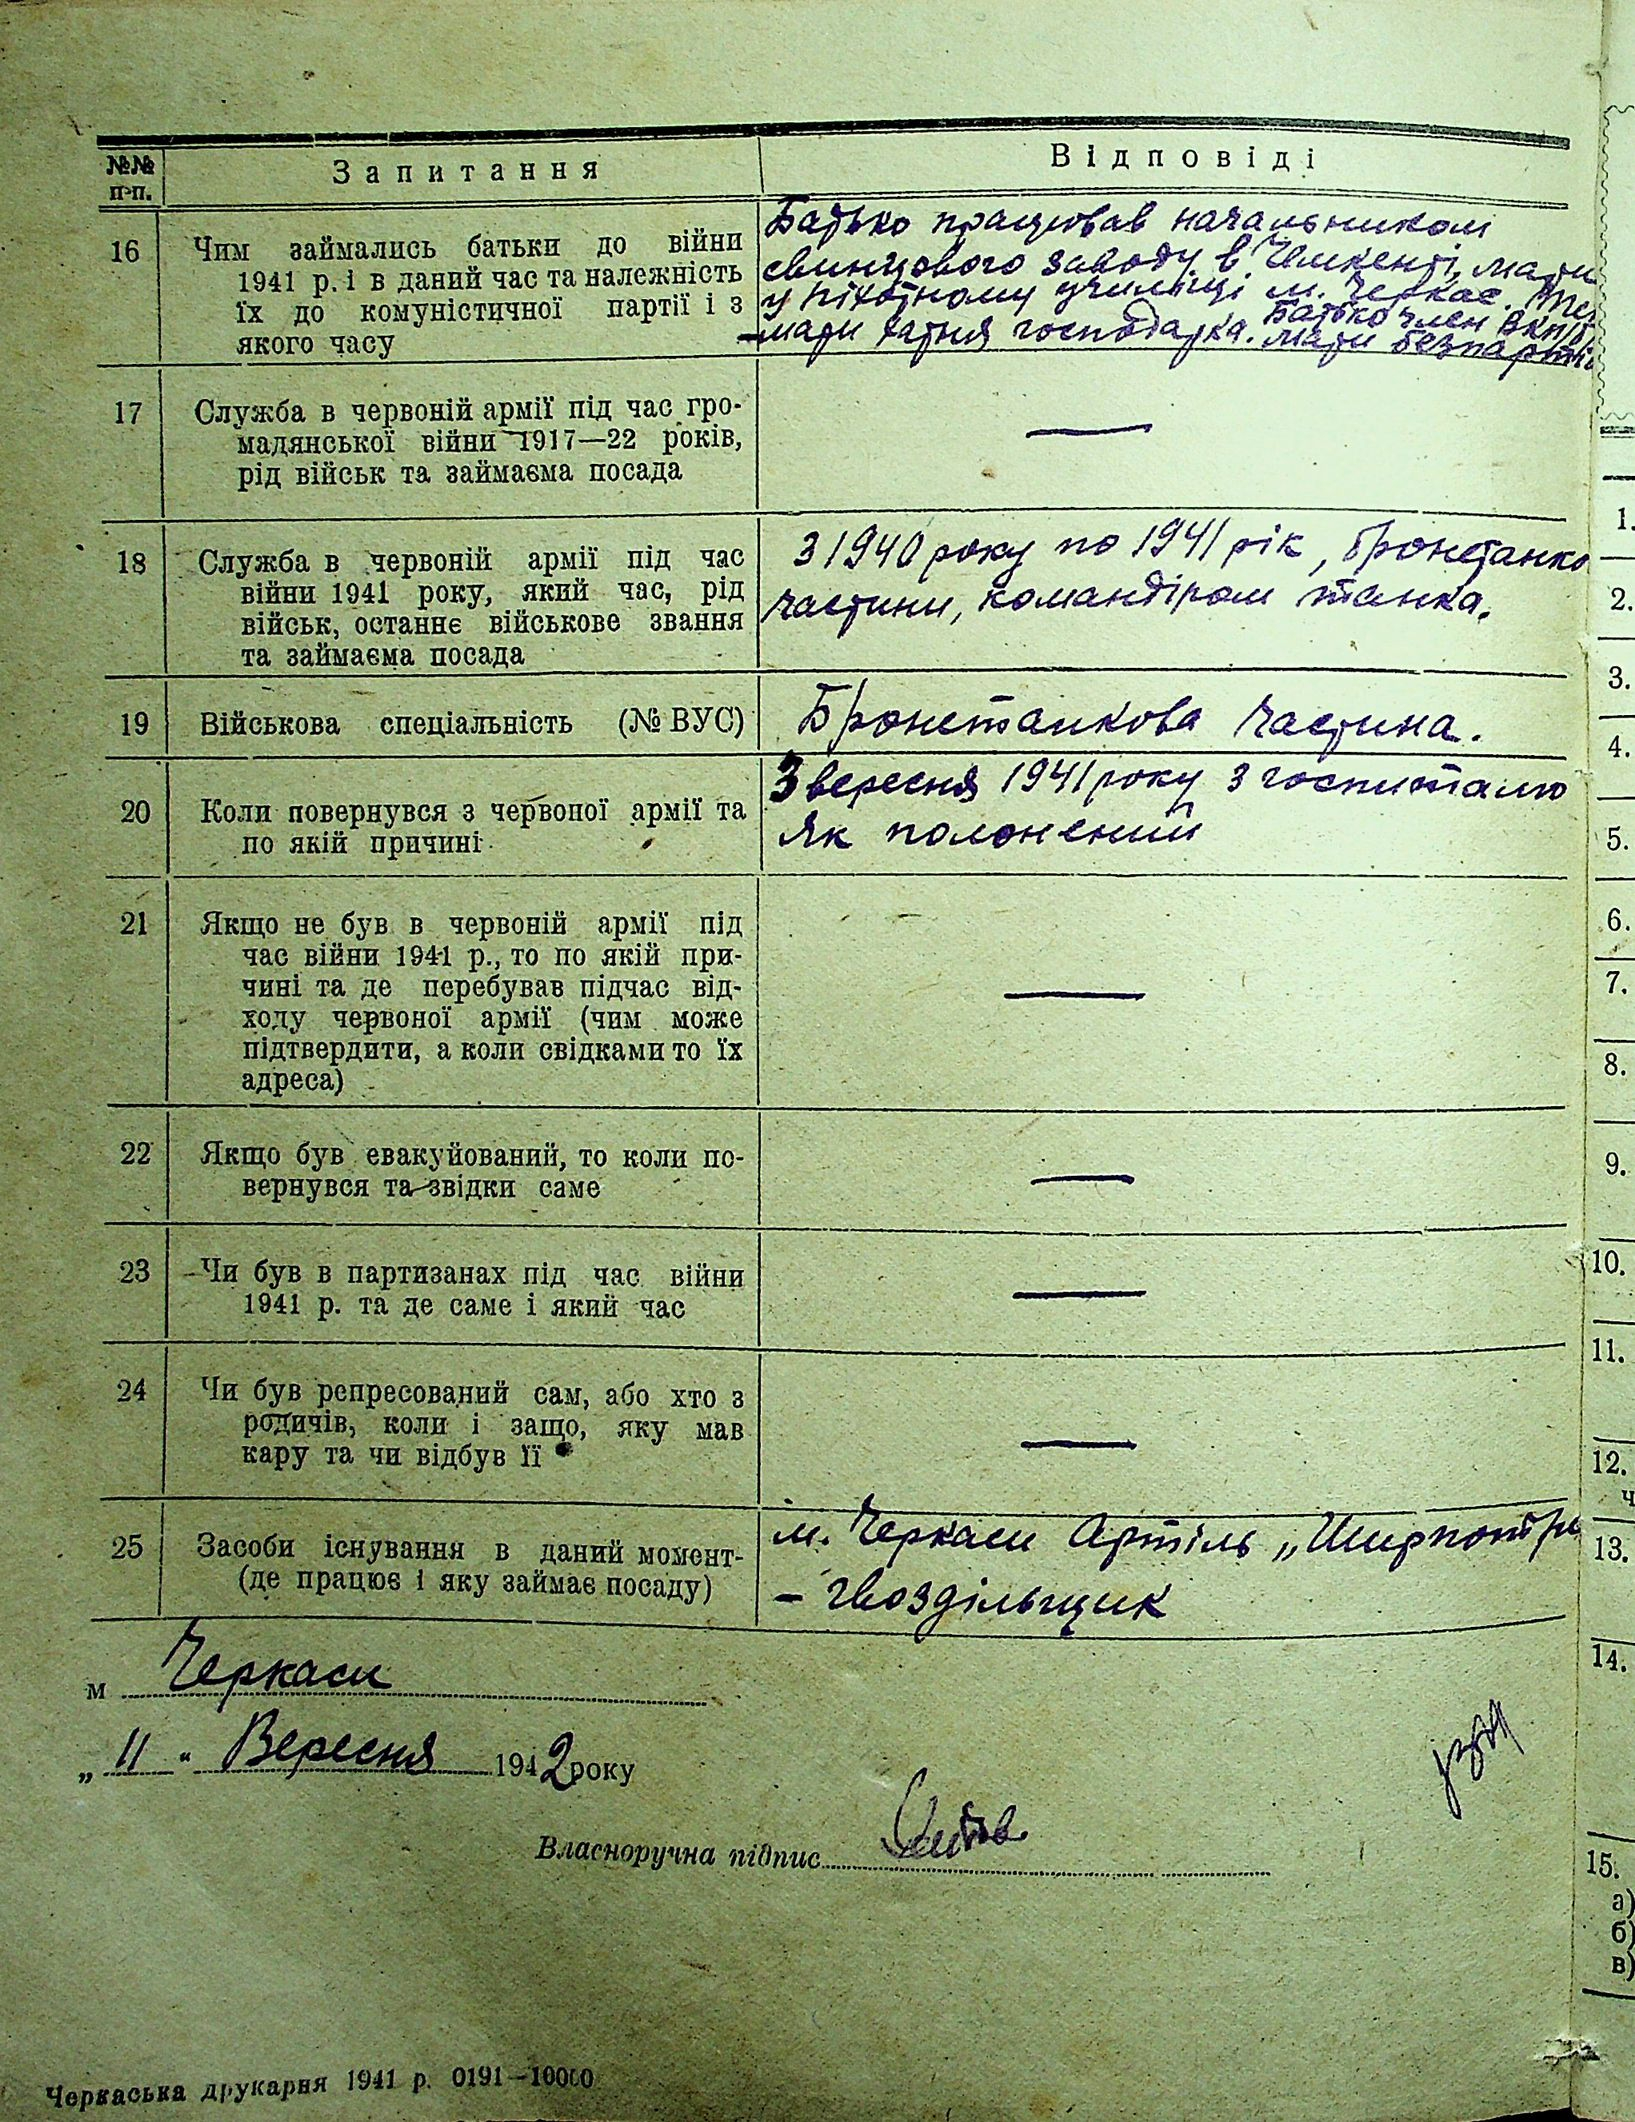 №№ п-п. Запитання Відповіді
16 Чим займались батьки до війни
1941 р. і в даний час та належність
їх до комуністичної партії і з
якого часу
Батько працював начальником
свинцового заводу в Чимкенті, мати
у піхотному училищі м. Черкас.
мати хатня господарка. Батько член ВКП
мати безпарт
17 Служба в червоній армії під час гро-
мадянської війни 1917—22 років,
рід військ та займаєма посада
—
18 Служба в червоній армії під час
війни 1941 року, який час, рід
військ, останнє військове звання
та займаєма посада
З 1940 року по 1941 рік, бронетанко
частини, командіром танка.
19 Військова спеціальність (№ ВУС)
Бронетанкова частина.
20 Коли повернувся з червоної армії та
по якій причині
З вересня 1941 року з госпиталю
як полонений
21 Якщо не був в червоній армії під
час війни 1941 р., то по якій при-
чині та де перебував підчас від-
ходу червоної армії (чим може
підтвердити, а коли свідками то їх
адреса)
—
22 Якщо був евакуйований, то коли по-
вернувся та звідки саме
—
23 Чи був в партизанах під час війни
1941 р. та де саме і який час
—
24 Чи був репресований сам, або хто з
родичів, коли і защо, яку мав
кару та чи відбув її
—
25 Засоби існування в даний момент-
(де працює і яку займає посаду)
м. Черкаси Артіль „Ширпотре
– гвоздільщик
м Черкаси
„ 11 “ Вересня 1942 року
Власноручна підпис
Черкаська друкарня 1941 р. 0191—10000
1.
2.
3.
4.
5.
6.
7.
8.
9.
10.
11.
12.
ч
13.
14.
15.
а)
б)
в)